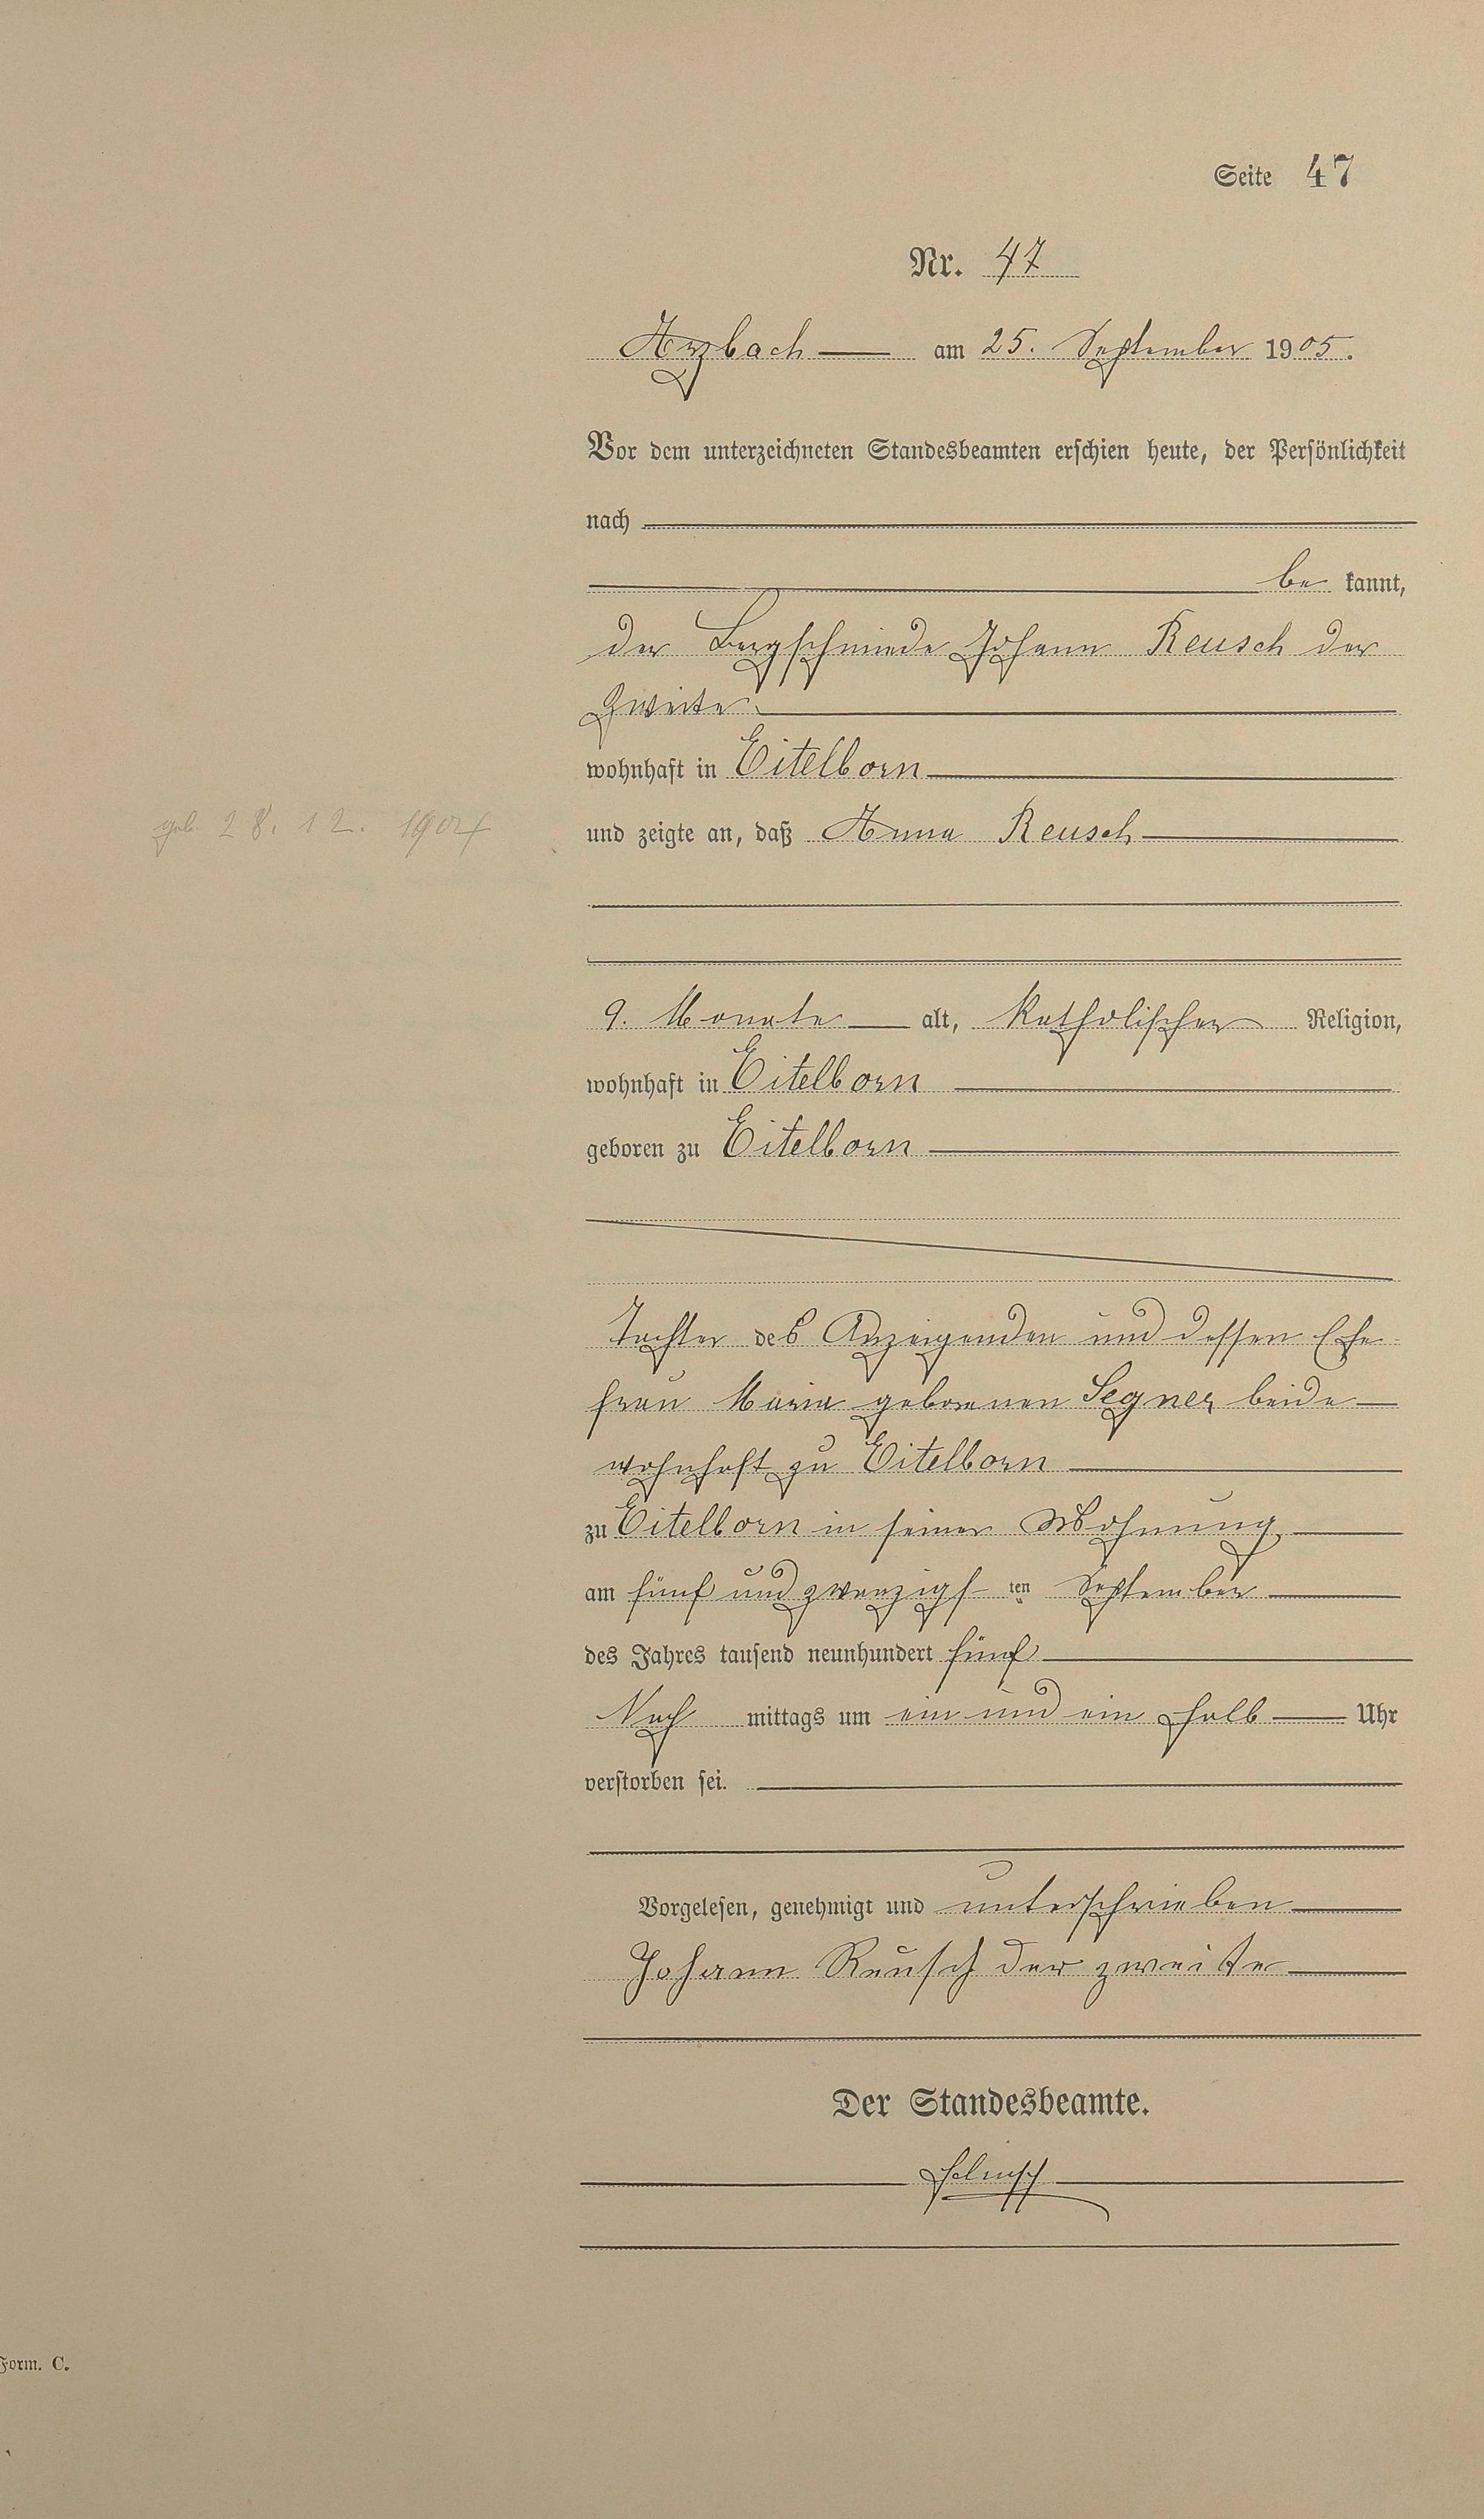 Seite 47
Nr. 47
Arzbach am 25. September 1905.
Vor dem unterzeichneten Standesbeamten erschien heute, der Persönlichkeit
nach
be kannt,
der Bergschmiede Johann Reusch der
Zweite
wohnhaft in Eitelborn
geb. 28. 12. 1904
und zeigte an, daß Anna Reusch
9. Monate alt, katholischer Religion,
wohnhaft in Eitelborn
geboren zu Eitelborn
Tochter des Anzeigenden und dessen Ehe-
frau Maria geborenen Segner beide
wohnhaft zu Eitelborn
zu Eitelborn in seiner Wohnung
am fünf und zwanzigs ten September
des Jahres tausend neunhundert fünf
Nach mittags um ein und ein halb Uhr
verstorben sei.
Vorgelesen, genehmigt und unterschrieben
Johann Reusch der zweite
Der Standesbeamte.
Form. C.